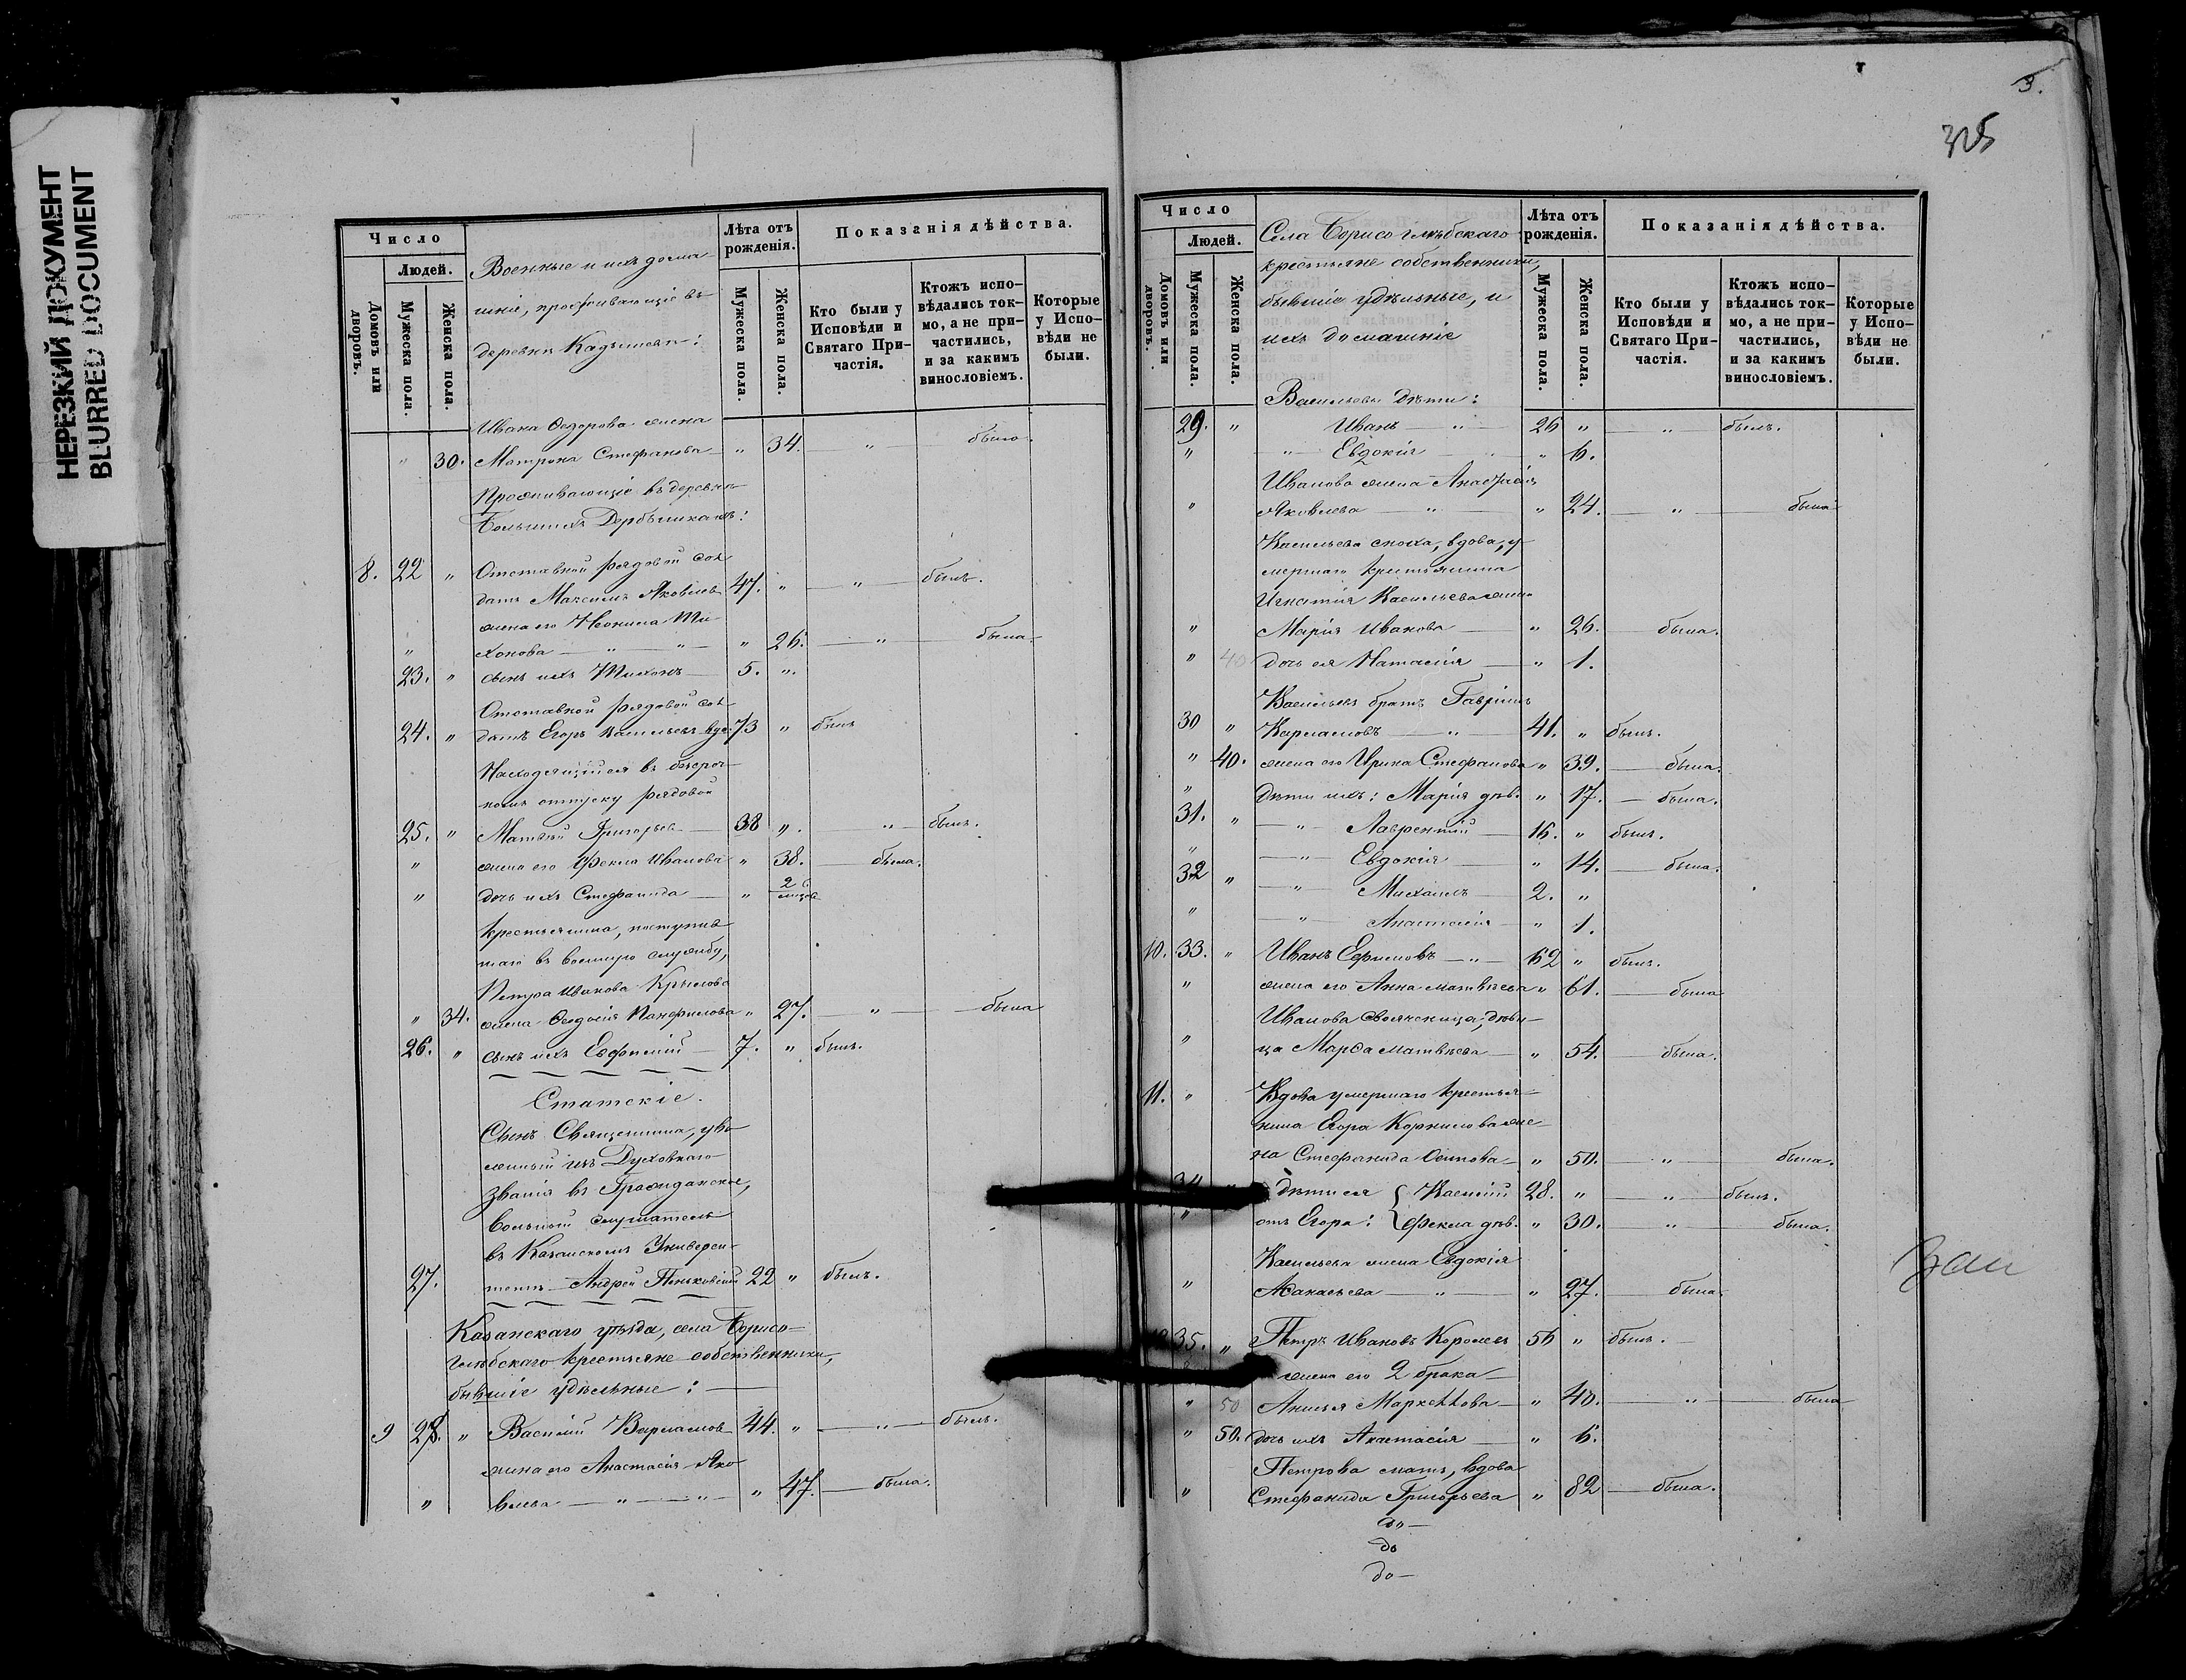 НЕРЕЗКИЙ ДОКУМЕНТ
BLURRED DOCUMENT
Число
Людей.
Домовъ или дворовъ.
Мужеска пола.
Женска пола.
Военные и ихъ дома-
шніе, проживающіе въ
деревнѣ Кадышевѣ:
Лѣта отъ рожденія.
Мужеска пола.
Женска пола.
Показанія дѣйства.
Кто были у Исповѣди и Святаго Причастія.
Ктожъ исповѣдались токмо, а не причастились, и за какимъ винословіемъ.
Которые у Исповѣди не были.
Ивана Ѳедорова жена
" 30. Матрона Стефанова " 34. " была.
Проживающіе въ деревнѣ
Большихъ Дербышкахъ:
8. 22 " Отставной рядовой сол
датъ Максимъ Яковлевъ 47. " " былъ.
жена его Неонила Ти
" хонова " " " 26. " была.
23. " сынъ ихъ Тихонъ 5. ".
Отставной рядовой сол
24. " датъ Егоръ Васильевъ вдо. 73 " былъ
Находящійся въ безсроч-
номъ отпуску рядовой
25. " Матвѣй Григорьевъ 38 ". " былъ.
" жена его Ѳекла Иванова " 38. была.
" дочь ихъ Стефанида " 2 мѣсяца
Крестьянина, поступив
шаго въ военную службу,
Петра Иванова Крылова
" 34. жена Ѳеодосія Панфилова " 27. " была
26. " сынъ ихъ Евфимій 7. " былъ.
Статскіе.
Сынъ Священника, уво
ленный изъ Духовнаго
званія въ Гражданское,
вольный слушатель
въ Казанскомъ Универси-
27. тетѣ Андрей Пеньковскій 22 " былъ.
Казанскаго уѣзда, села Борисо-
глѣбскаго крестьяне собственники,
бывшіе удѣльные:
9 28. " Василій Варламовъ 44. " " былъ.
жена его Анастасія Яко
" влева " " " 47. была.
3.
325
Число
Людей.
Домовъ или дворовъ.
Мужеска пола.
Женска пола.
Села Борисоглѣбскаго
крестьяне собственники,
бывшіе удѣльные, и
ихъ домашніе
Лѣта отъ рожденія.
Мужеска пола.
Женска пола.
Показанія дѣйства.
Кто были у Исповѣди и Святаго Причастія.
Ктожъ исповѣдались токмо, а не причастились, и за какимъ винословіемъ.
Которые у Исповѣди не были.
Васильевы дѣти:
29. " Иванъ " 26 " " былъ.
" " Евдокія " 6.
Иванова жена Анастасія
" Яковлева " " 24. " была
Васильева сноха, вдова, у-
мершаго крестьянина
Игнатія Васильева жена
" Марія Иванова " 26. была.
" 40 дочь ея Наталія " 1.
Васильевъ братъ Гавріилъ
30 " Варламовъ " 41. " былъ.
" 40. жена его Ирина Стефанова " 39. была.
" Дѣти ихъ: Марія дѣв. " 17. была.
31. " " Лаврентій 16. " былъ.
" " Евдокія " 14. была.
32 " " Михаилъ 2. "
" " Анастасія " 1.
10. 33. " Иванъ Ефимовъ " 62 " былъ.
" жена его Анна Матвѣева " 61. была
Иванова свояченица, дѣви-
" ца Марѳа Матвѣева " 54. была.
11. " Вдова умершаго крестья-
нина Егора Корнилова же-
на Стефанида Осипова " 50. " была.
34 " дѣти ея Василій 28. " " былъ.
" отъ Егора: Ѳекла дѣв. " 30. " была.
Васильева жена Евдокія
" Аѳанасьева " " 27. была
35. " Петръ Ивановъ Королевъ 56 " былъ.
жена его 2 брака
" 50 Аксинья " 40. " была
" 50. дочь ихъ Анастасія " 6.
Петрова мать, вдова
" Стефанида Григорьева " 82 была.
до
до